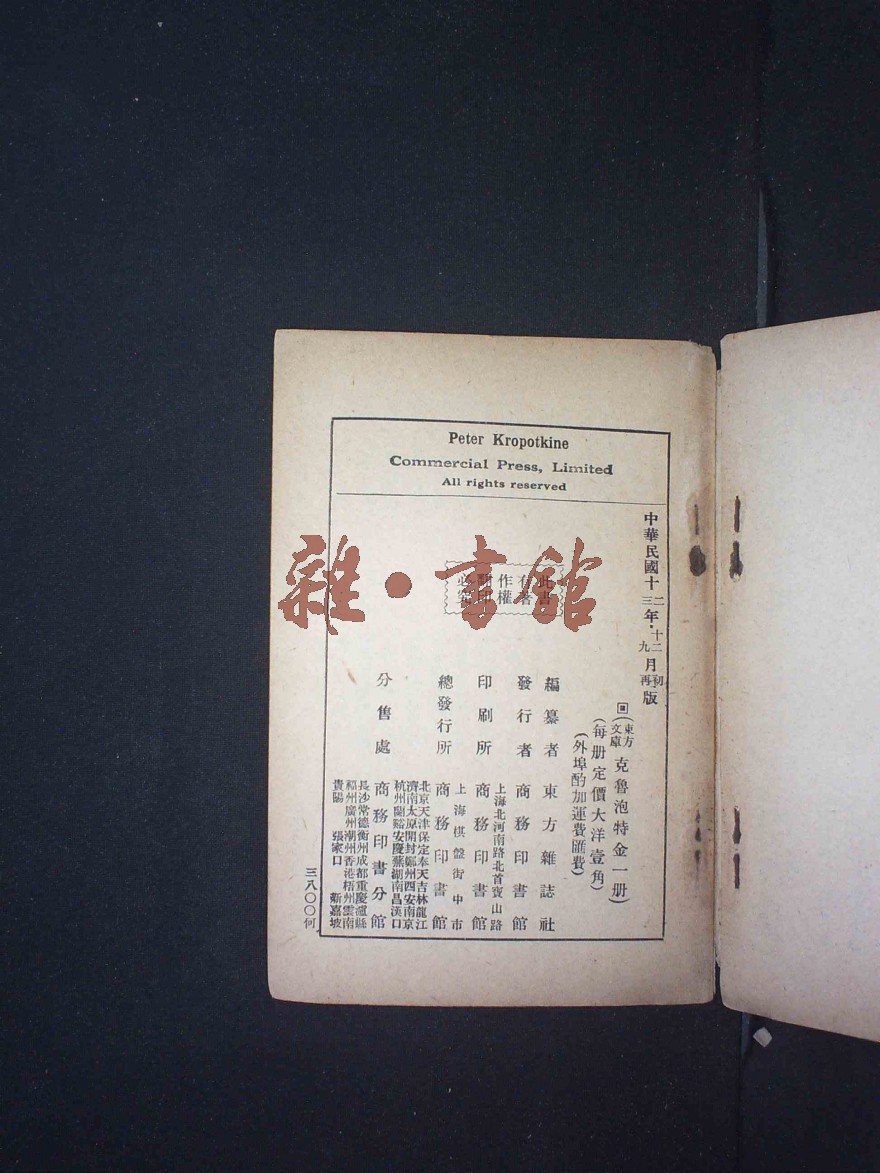 Peter Kropotkine
Commercial Press, Limited
All rights reserved
中華民國十二年十二月初版
三年九月再版
(東方文庫)克魯泡特金一册)
(每册定價大洋壹角)
(外埠酌加運費匯費)
此書
有著
作權
翻印
必究
編纂者 東方雜誌社
發行者 商務印書館
上海北河南路北首寶山路
印刷所 商務印書館
上海棋盤街中市
總發行所 商務印書館
北京天津保定奉天吉林龍江
濟南太原開封鄭州西安南京
杭州蘭谿安慶蕪湖南昌漢口
分售處 商務印書分館
長沙常德衡州成都重慶瀘縣
福州廣州潮州香港梧州雲南
貴陽 張家口 新嘉坡
三八〇〇何
雜·書館